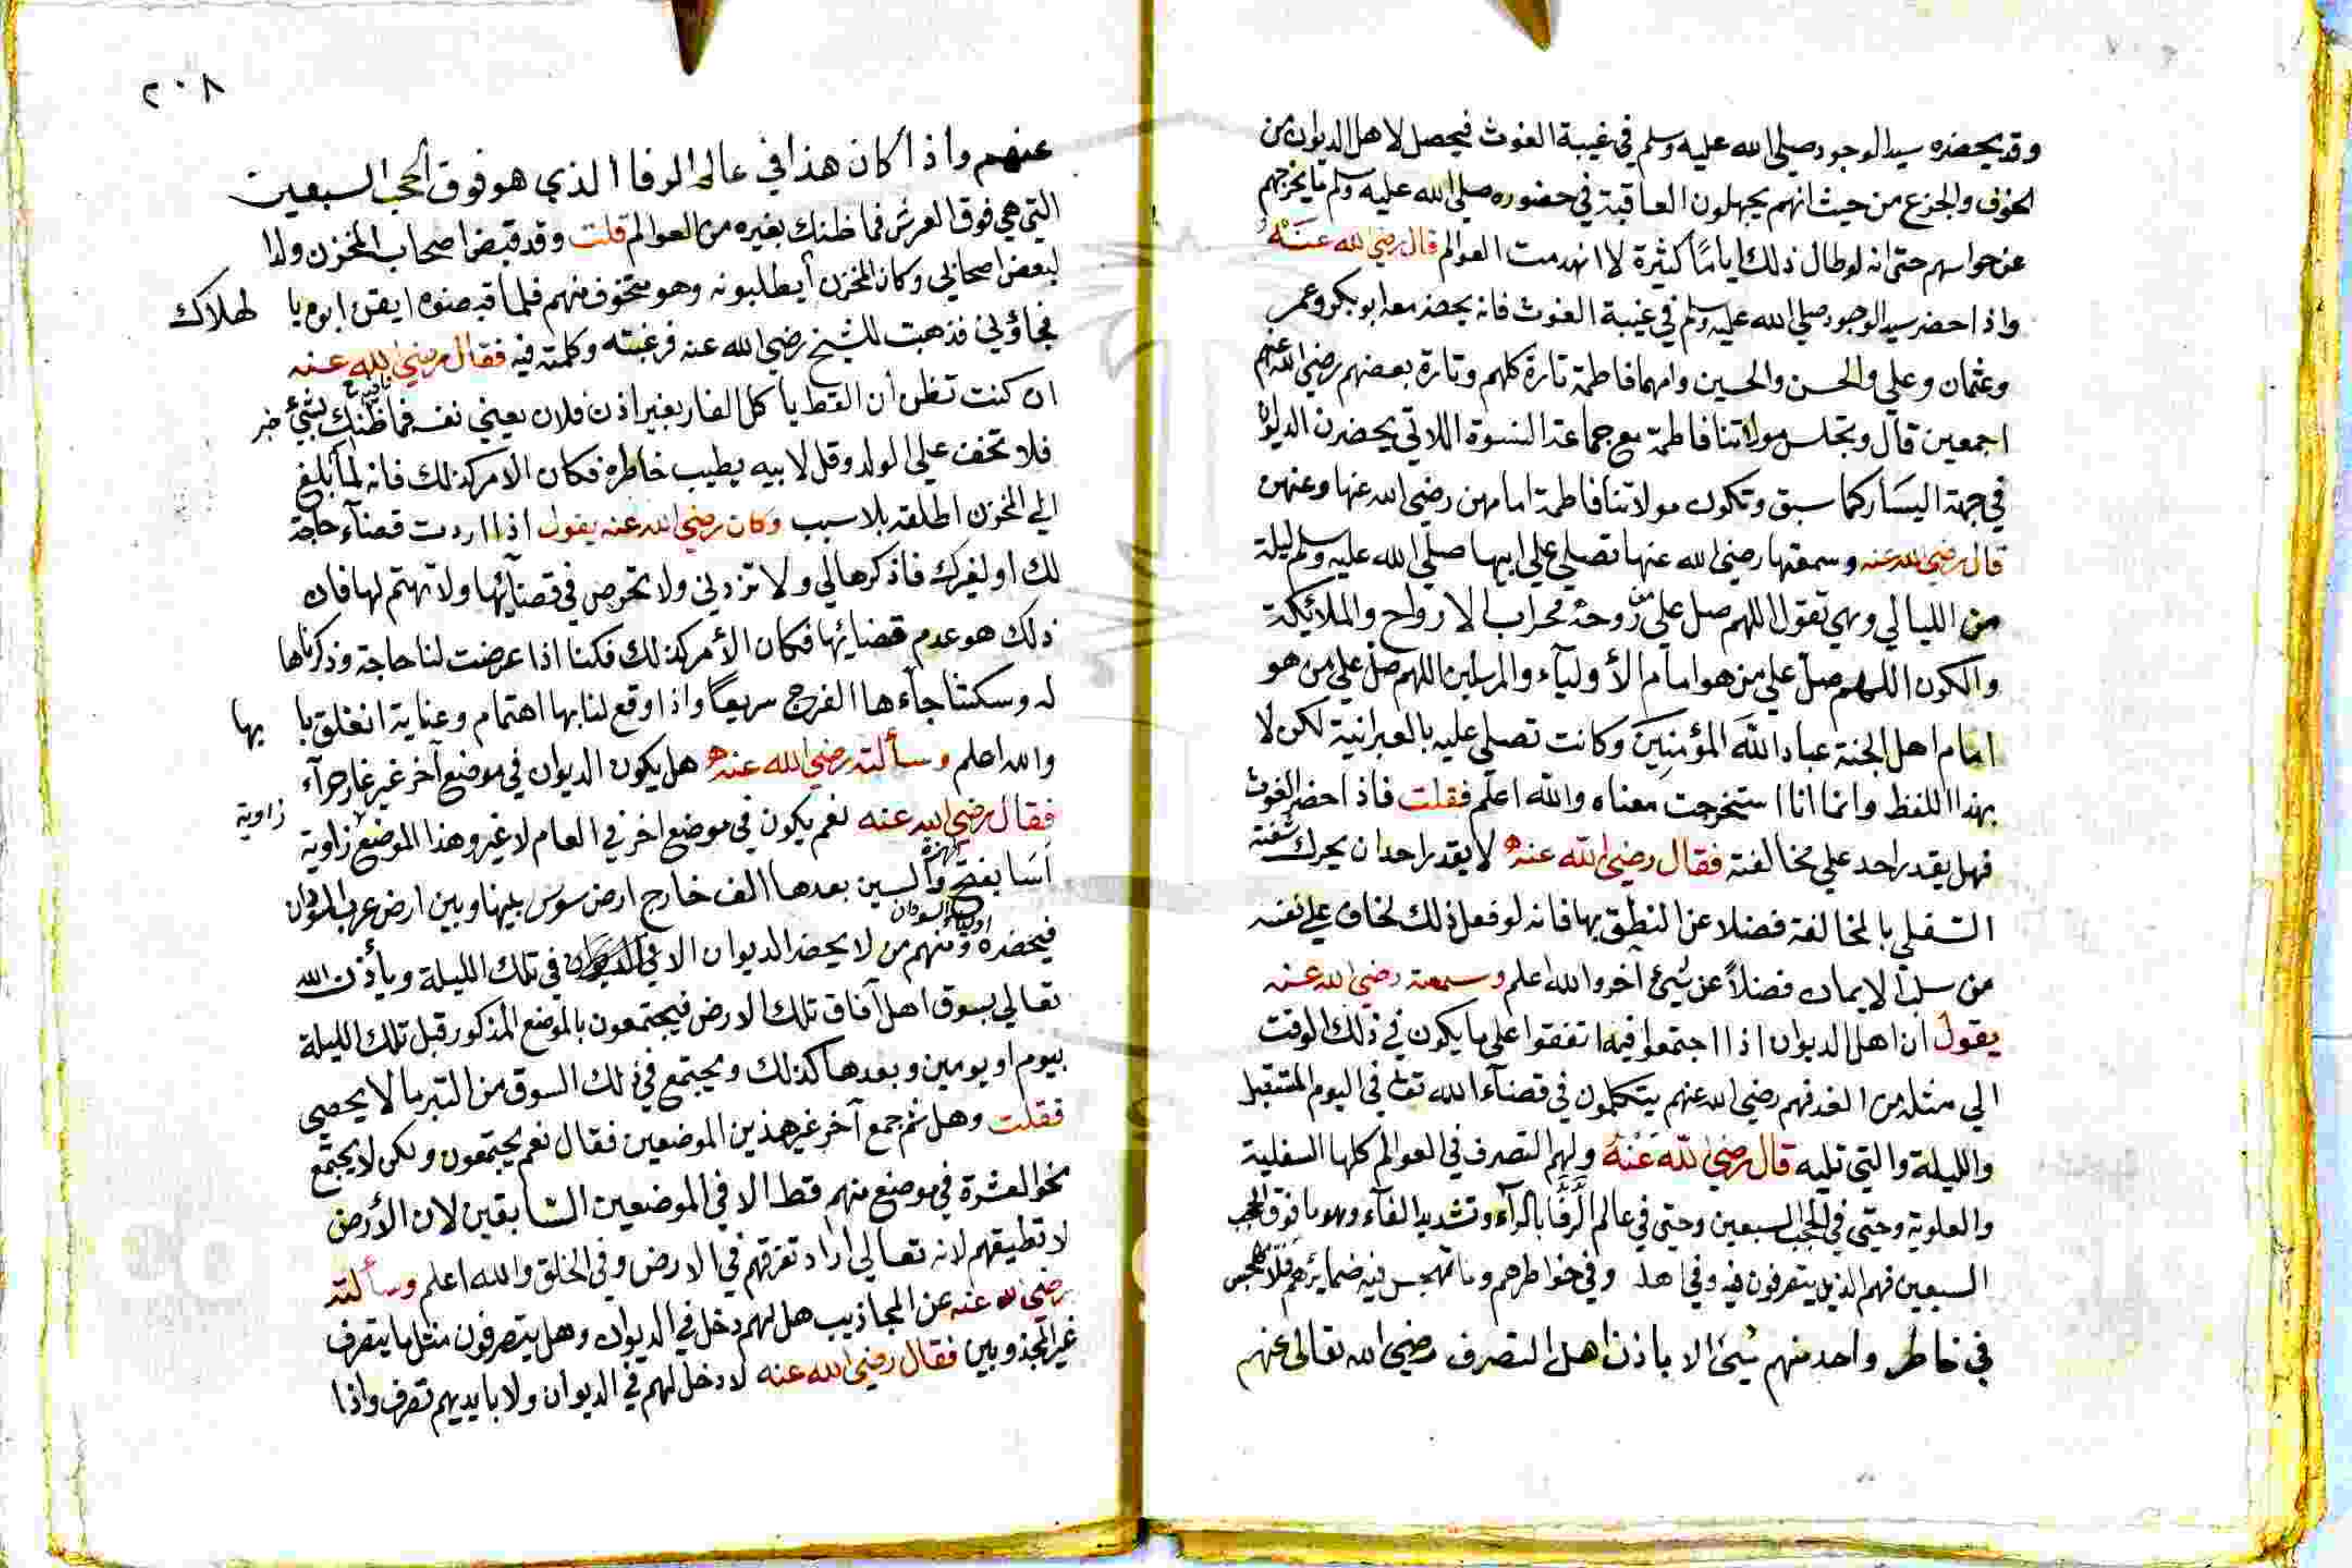 وقد يحضره سيد الوجود صلى الله عليه وسلم في غيبة الغوث فيحصل لاهل الديوان من
الخوف والجزع من حيث انهم يجهلون العاقبة في حضوره صلى الله عليه وسلم ما يخرجهم
عن حواسهم حتى انه لو طال ذلك اياما كثيرة لا انهدمت العوالم قال رضي الله عنه
واذا حضر سيد الوجود صلي الله عليه وسلم في غيبة الغوث فانه يحضر معه ابو بكر وعمر
وعثمان وعلي والحسن والحسين وامهما فاطمة تارة كلهم وتارة بعضهم رضي الله عنهم
اجمعين قال وتجلس مولاتنا فاطمة مع جماعة النسوة اللاتي يحضرن الديوان
في جهة اليسار كما سبق وتكون مولاتنا فاطمة امامهن رضي الله عنها وعنهن
قال رضي الله عنه وسمعتها رضي الله عنها تصلي علي ابيها صلي الله عليه وسلم ليلة
من الليالي وهي تقول اللهم صل علي من روحه محراب الارواح والملائكة
والكون اللهم صل علي من هو امام الأولياء والمرسلين اللهم صل علي من هو
امام اهل الجنة عباد الله المؤمنين وكانت تصلي عليه بالعبرانية لكن لا
بهذا اللفظ وانما انا استخرجت معناه والله اعلم فقلت فاذا حضر الغوث
فهل يقدر احد علي مخالفته فقال رضي الله عنه لا يقدر احد ان يحرك شفته
السفلي بالمخالفة فضلا عن النطق بها فانه لو فعل ذلك لخاف علي نفسه
من سلب الايمان فضلاً عن شيء آخر والله اعلم وسمعته رضي الله عنه
يقول ان اهل الديوان اذا اجتمعوا فيه اتفقوا علي ما يكون في ذلك الوقت
الي مثله من الغد فهم رضي الله عنهم يتكلمون في قضاء الله تعالي في اليوم المستقبل
والليلة والتي تليه قال رضي الله عنه ولهم التصرف في العوالم كلها السفلية
والعلوية وحتي في الحجب السبعين وحتي في عالم الرقا بالراء وتشديد القاء وهو ما فوق الحجب
السبعين فهم الذين يتصرفون فيه وفي اهله وفي خواطرهم وما تهجس فيه ضمايرهم فلا يهجس
في خاطر واحد منهم شيئ الا باذن اهل التصرف رضي الله تعالى عنهم
٢٠٨
عنهم واذا كان هذا في عالم الرقا الذي هو فوق الحجب السبعين
التي هي فوق العرش فما ظنك بغيره من العوالم قلت وقد قبض اصحاب المخزن ولدا
لبعض اصحابي وكان المخزن يطلبونه وهو متخوف منهم فلما قبضوه ايقن ابوه با لهلاك
فجاؤني فذهبت للشيخ رضي الله عنه فرغبته وكلمته فيه فقال رضي الله عنه
ان كنت تظن أن القط يأكل الفار بغير اذن فلان يعني نفسه فما ظنك بشيء
فلا تخف علي الولد وقل لابيه يطيب خاطره فكان الامر كذلك فانه لما بلغ
الي المخزن اطلقه بلا سبب وكان رضي الله عنه يقول اذا اردت قضاء حاجة
لك او لغيرك فاذكرها لي ولا تزدني ولا تحرص في قضائها ولا تهتم لها فان
ذلك هو عدم قضائها فكان الأمر كذلك فكنا اذا عرضت لنا حاجة وذكرناها
له وسكتنا جاءها الفرج سريعاً واذا وقع لنا بها اهتمام وعناية انغلق با بها
والله اعلم وسألته رضي الله عنه هل يكون الديوان في موضع آخر غير غار حرآء
فقال رضي الله عنه نعم يكون في موضع اخر في العام لا غير وهذا الموضع زاوية زاوية
أسا بفتح الهمزة والسين بعدها الف خارج ارض سوس بينها وبين ارض غرب السودان
فيحضره اولياء السودان ومنهم من لا يحضر الديوان الا في تلك الليلة ويأذن الله
تعالي بسوق اهل آفاق تلك الارض فيجتمعون بالموضع المذكور قبل تلك الليلة
بيوم او يومين وبعدها كذلك ويجتمع في ذلك السوق من التبر ما لا يحصى
فقلت وهل ثم جمع آخر غير هذين الموضعين فقال نعم يجتمعون ولكن لا يجتمع
نحو العشرة في موضع منهم قط الا في الموضعين السابقين لان الأرض
لا تطيقهم لانه تعالي اراد تفرقهم في الارض وفي الخلق والله اعلم وسألته
رضي الله عنه عن المجاذيب هل لهم دخل في الديوان وهل يتصرفون مثل ما يتصرف
غير المجذوبين فقال رضي الله عنه لا دخل لهم في الديوان ولا بايديهم تصرف واذا